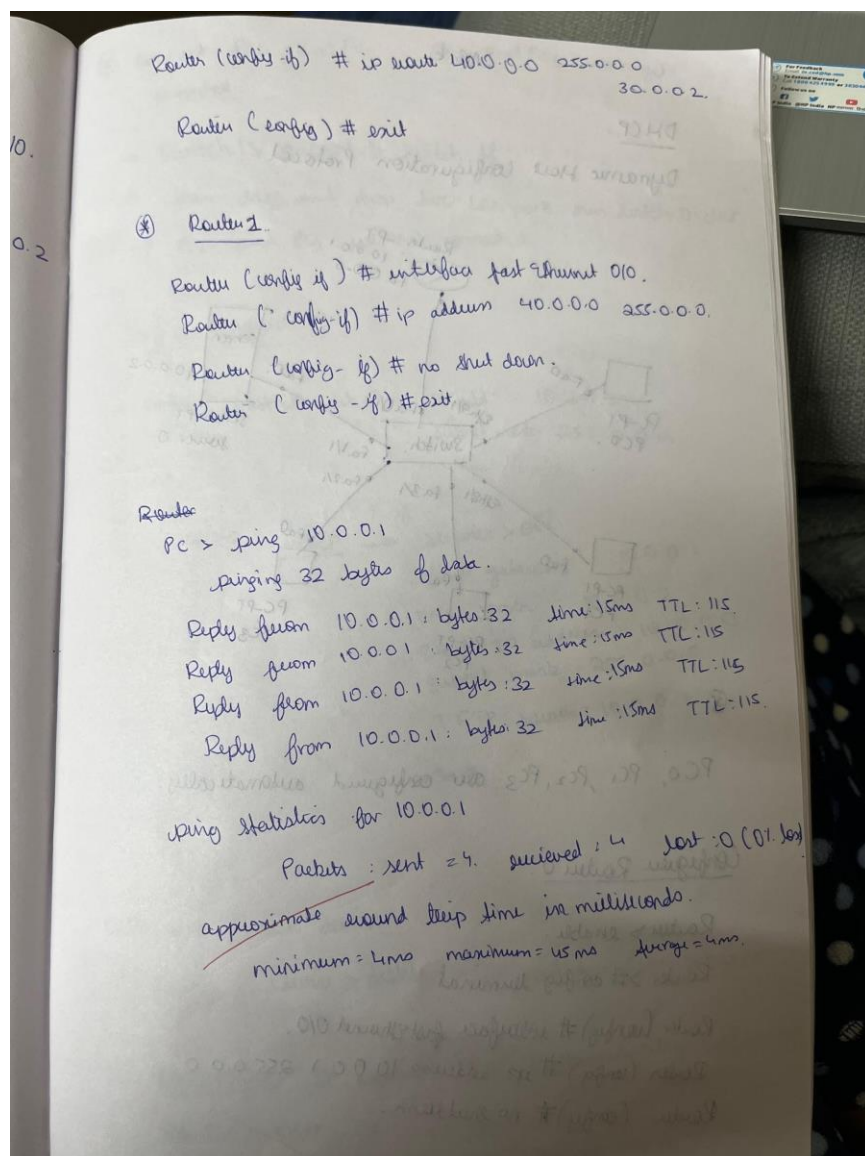 Router (config-if) # ip route 40.0.0.0 255.0.0.0
30.0.02.
Router (config) # exit
10.
0.2
* Router 1
Router (config if) # interface fast Ethernet 0/0.
Router (config-if) # ip address 40.0.0.0 255.0.0.0.
Router (config-if) # no shut down.
Router (config-if) # exit
Router
PC > ping 10.0.0.1
pinging 32 bytes of data.
Reply from 10.0.0.1 : bytes:32 time:15ms TTL:115
Reply from 10.0.01 : bytes:32 time:15ms TTL:115
Reply from 10.0.0.1 : bytes:32 time:15ms TTL:115
Reply from 10.0.0.1 : bytes:32 time:15ms TTL:115.
ping statistics for 10.0.0.1
Packets : sent = 4. recieved : 4 lost : 0 (0% loss)
approximate round trip time in milliseconds.
minimum = 4ms maximum = 45 ms Average = 4ms.
For Feedback
To Extend Warranty
Follow us on